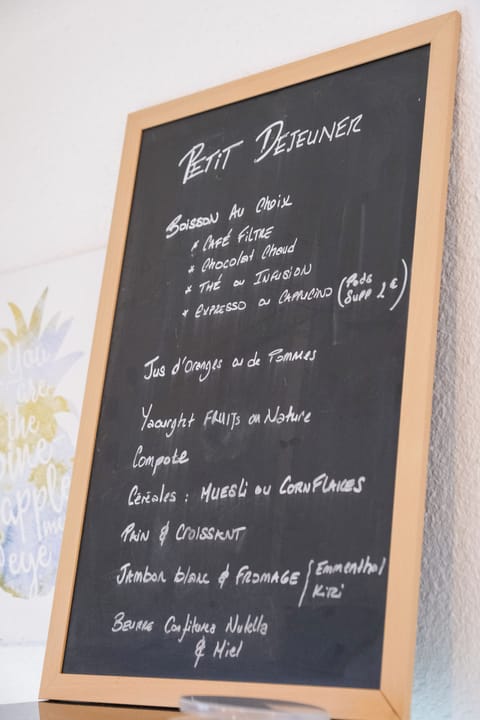 PETIT DEJEUNER
BOISSON AU CHOIX
* CAFÉ FILTRE
* Chocolat Chaud
* THÉ ou INFUSION
* EXPRESSO ou CAPPUCINO (PODS SUPP 2€)
Jus d'Oranges ou de Pommes
Yaourght FRUITS ou Nature
Compote
Céréales : MUESLI ou CORNFLAKES
PAIN & CROISSANT
JAMBON blanc & FROMAGE { Emmenthal
KIRI
BEURRE Confitures Nutella
& Miel
You
are
the
pine
apple
my
eye